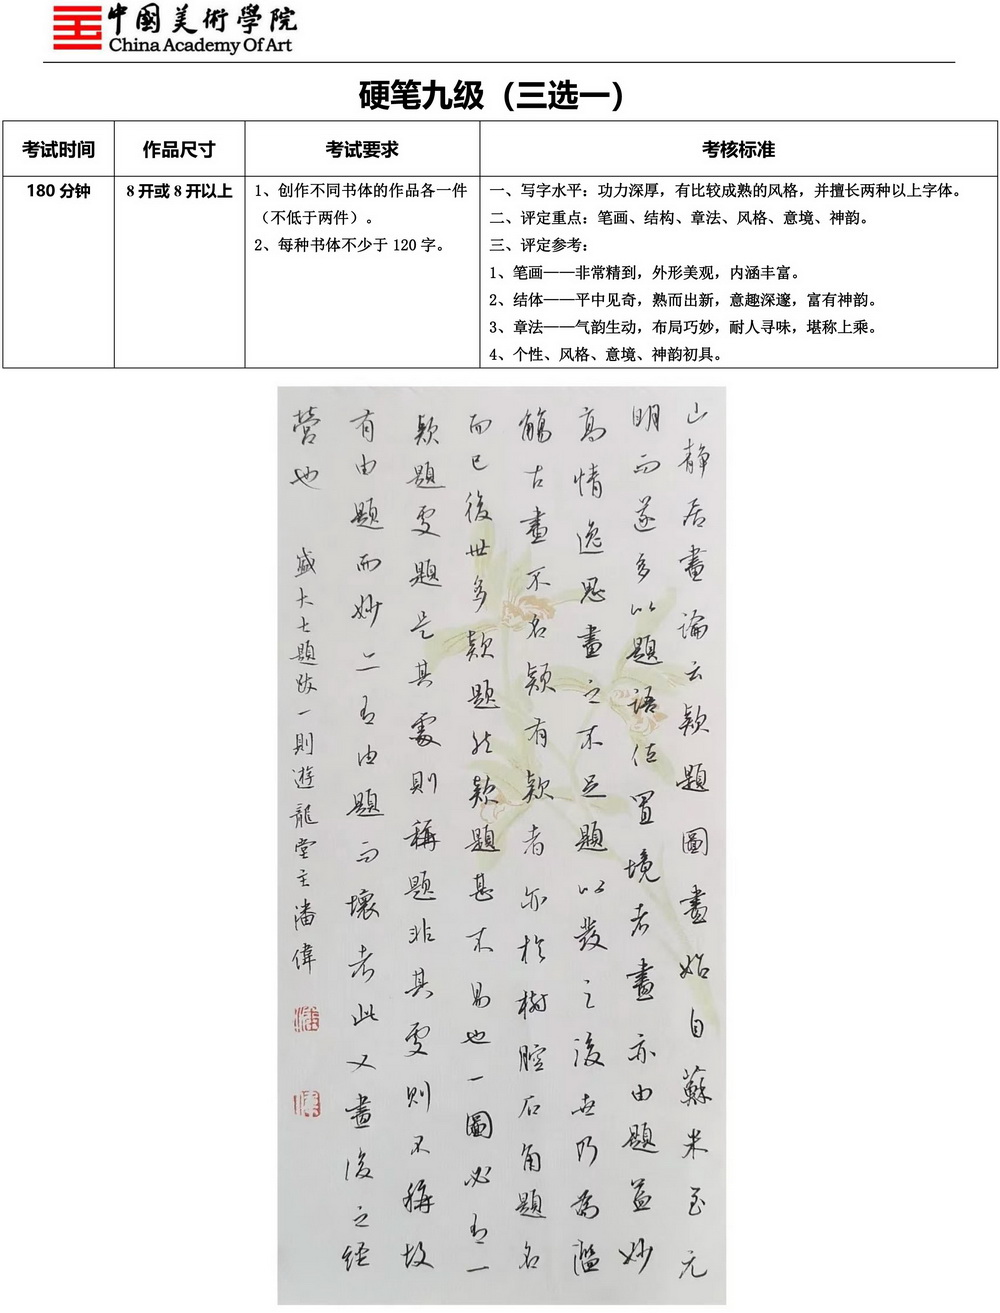 中國美術學院
China Academy Of Art
硬笔九级（三选一）
考试时间
作品尺寸
考试要求
考核标准
180 分钟
8 开或 8 开以上
1、创作不同书体的作品各一件
（不低于两件）。
2、每种书体不少于 120 字。
一、写字水平：功力深厚，有比较成熟的风格，并擅长两种以上字体。
二、评定重点：笔画、结构、章法、风格、意境、神韵。
三、评定参考：
1、笔画——非常精到，外形美观，内涵丰富。
2、结体——平中见奇，熟而出新，意趣深邃，富有神韵。
3、章法——气韵生动，布局巧妙，耐人寻味，堪称上乘。
4、个性、风格、意境、神韵初具。
山靜居畫論云款題圖畫始自蘇米至元
明而遂多以題語位置境者畫亦由題益妙
高情逸思畫之不足題以發之後世乃為濫
觴古畫不名款有款者亦於樹腔石角題名
而已後世多款題然款題甚不易也一圖必有一
款題處題是其處則稱題非其處則不稱故
有由題而妙亦有由題而壞者此又畫後之經
營也
盛大士題跋一則遊龍堂主潘偉